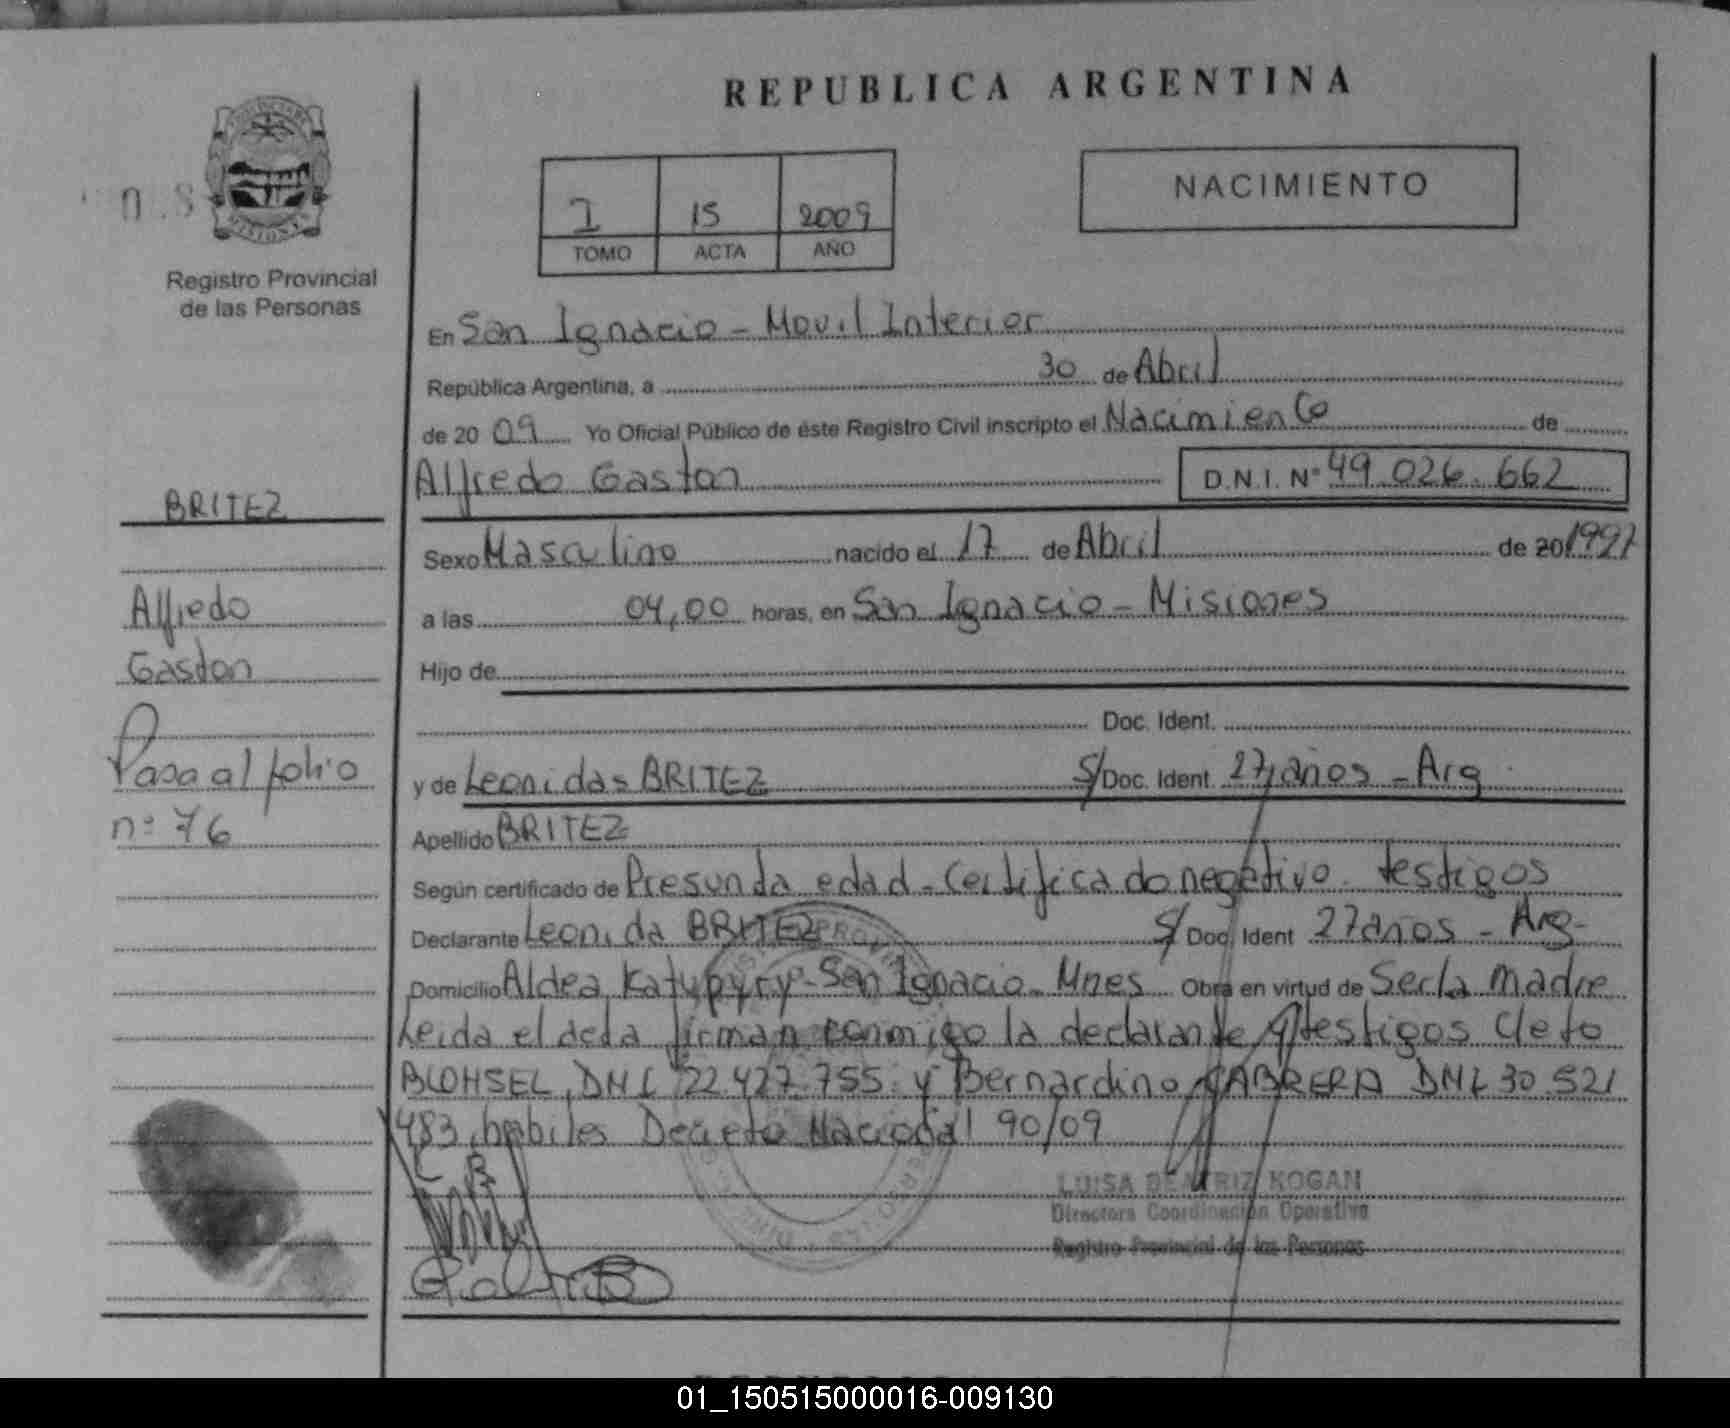 REPUBLICA ARGENTINA
NACIMIENTO
I 15 2009
TOMO ACTA AÑO
Registro Provincial
de las Personas
En San Ignacio - Movil Interior
República Argentina, a 30 de Abril
de 20 09 Yo Oficial Público de éste Registro Civil inscripto el Nacimiento de
Alfredo Gaston D.N.I. Nº 49.026.662
BRITEZ
Sexo Masculino nacido el 17 de Abril de 20 1997
Alfredo
a las 04,00 horas, en San Ignacio - Misiones
Gaston
Hijo de
Doc. Ident.
Pasa al folio
nº 76
y de Leonidas BRITEZ S/ Doc. Ident. 27 años - Arg.
Apellido BRITEZ
Según certificado de Presunda edad - Certificado negativo. testigos
Declarante Leonida BRITEZ S/ Doc. Ident 27 años - Arg-
Domicilio Aldea Katupyry - San Ignacio - Mnes Obra en virtud de Ser la madre
Leida el acta firman conmigo la declarante y testigos Cleto
DNI 22.427.755 y Bernardino CABRERA DNI 30.521
483, habiles Decreto Nacional 90/09
LUISA BEATRIZ KOGAN
Directora Coordinación Operativa
Registro Provincial de las Personas
01_150515000016-009130